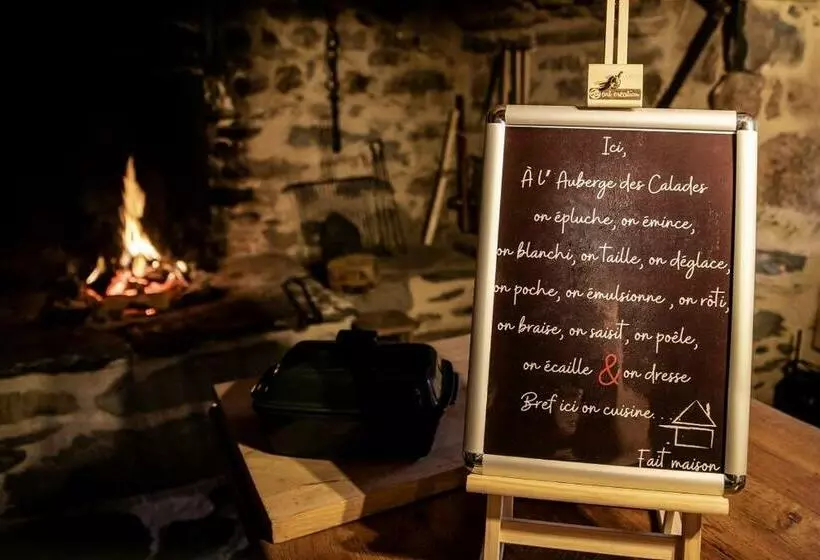 Ici,
À l' Auberge des Calades
on épluche, on émince,
on blanchi, on taille, on déglace,
on poche, on émulsionne , on rôti,
on braise, on saisit, on poêle,
on écaille & on dresse
Bref ici on cuisine...
Fait maison